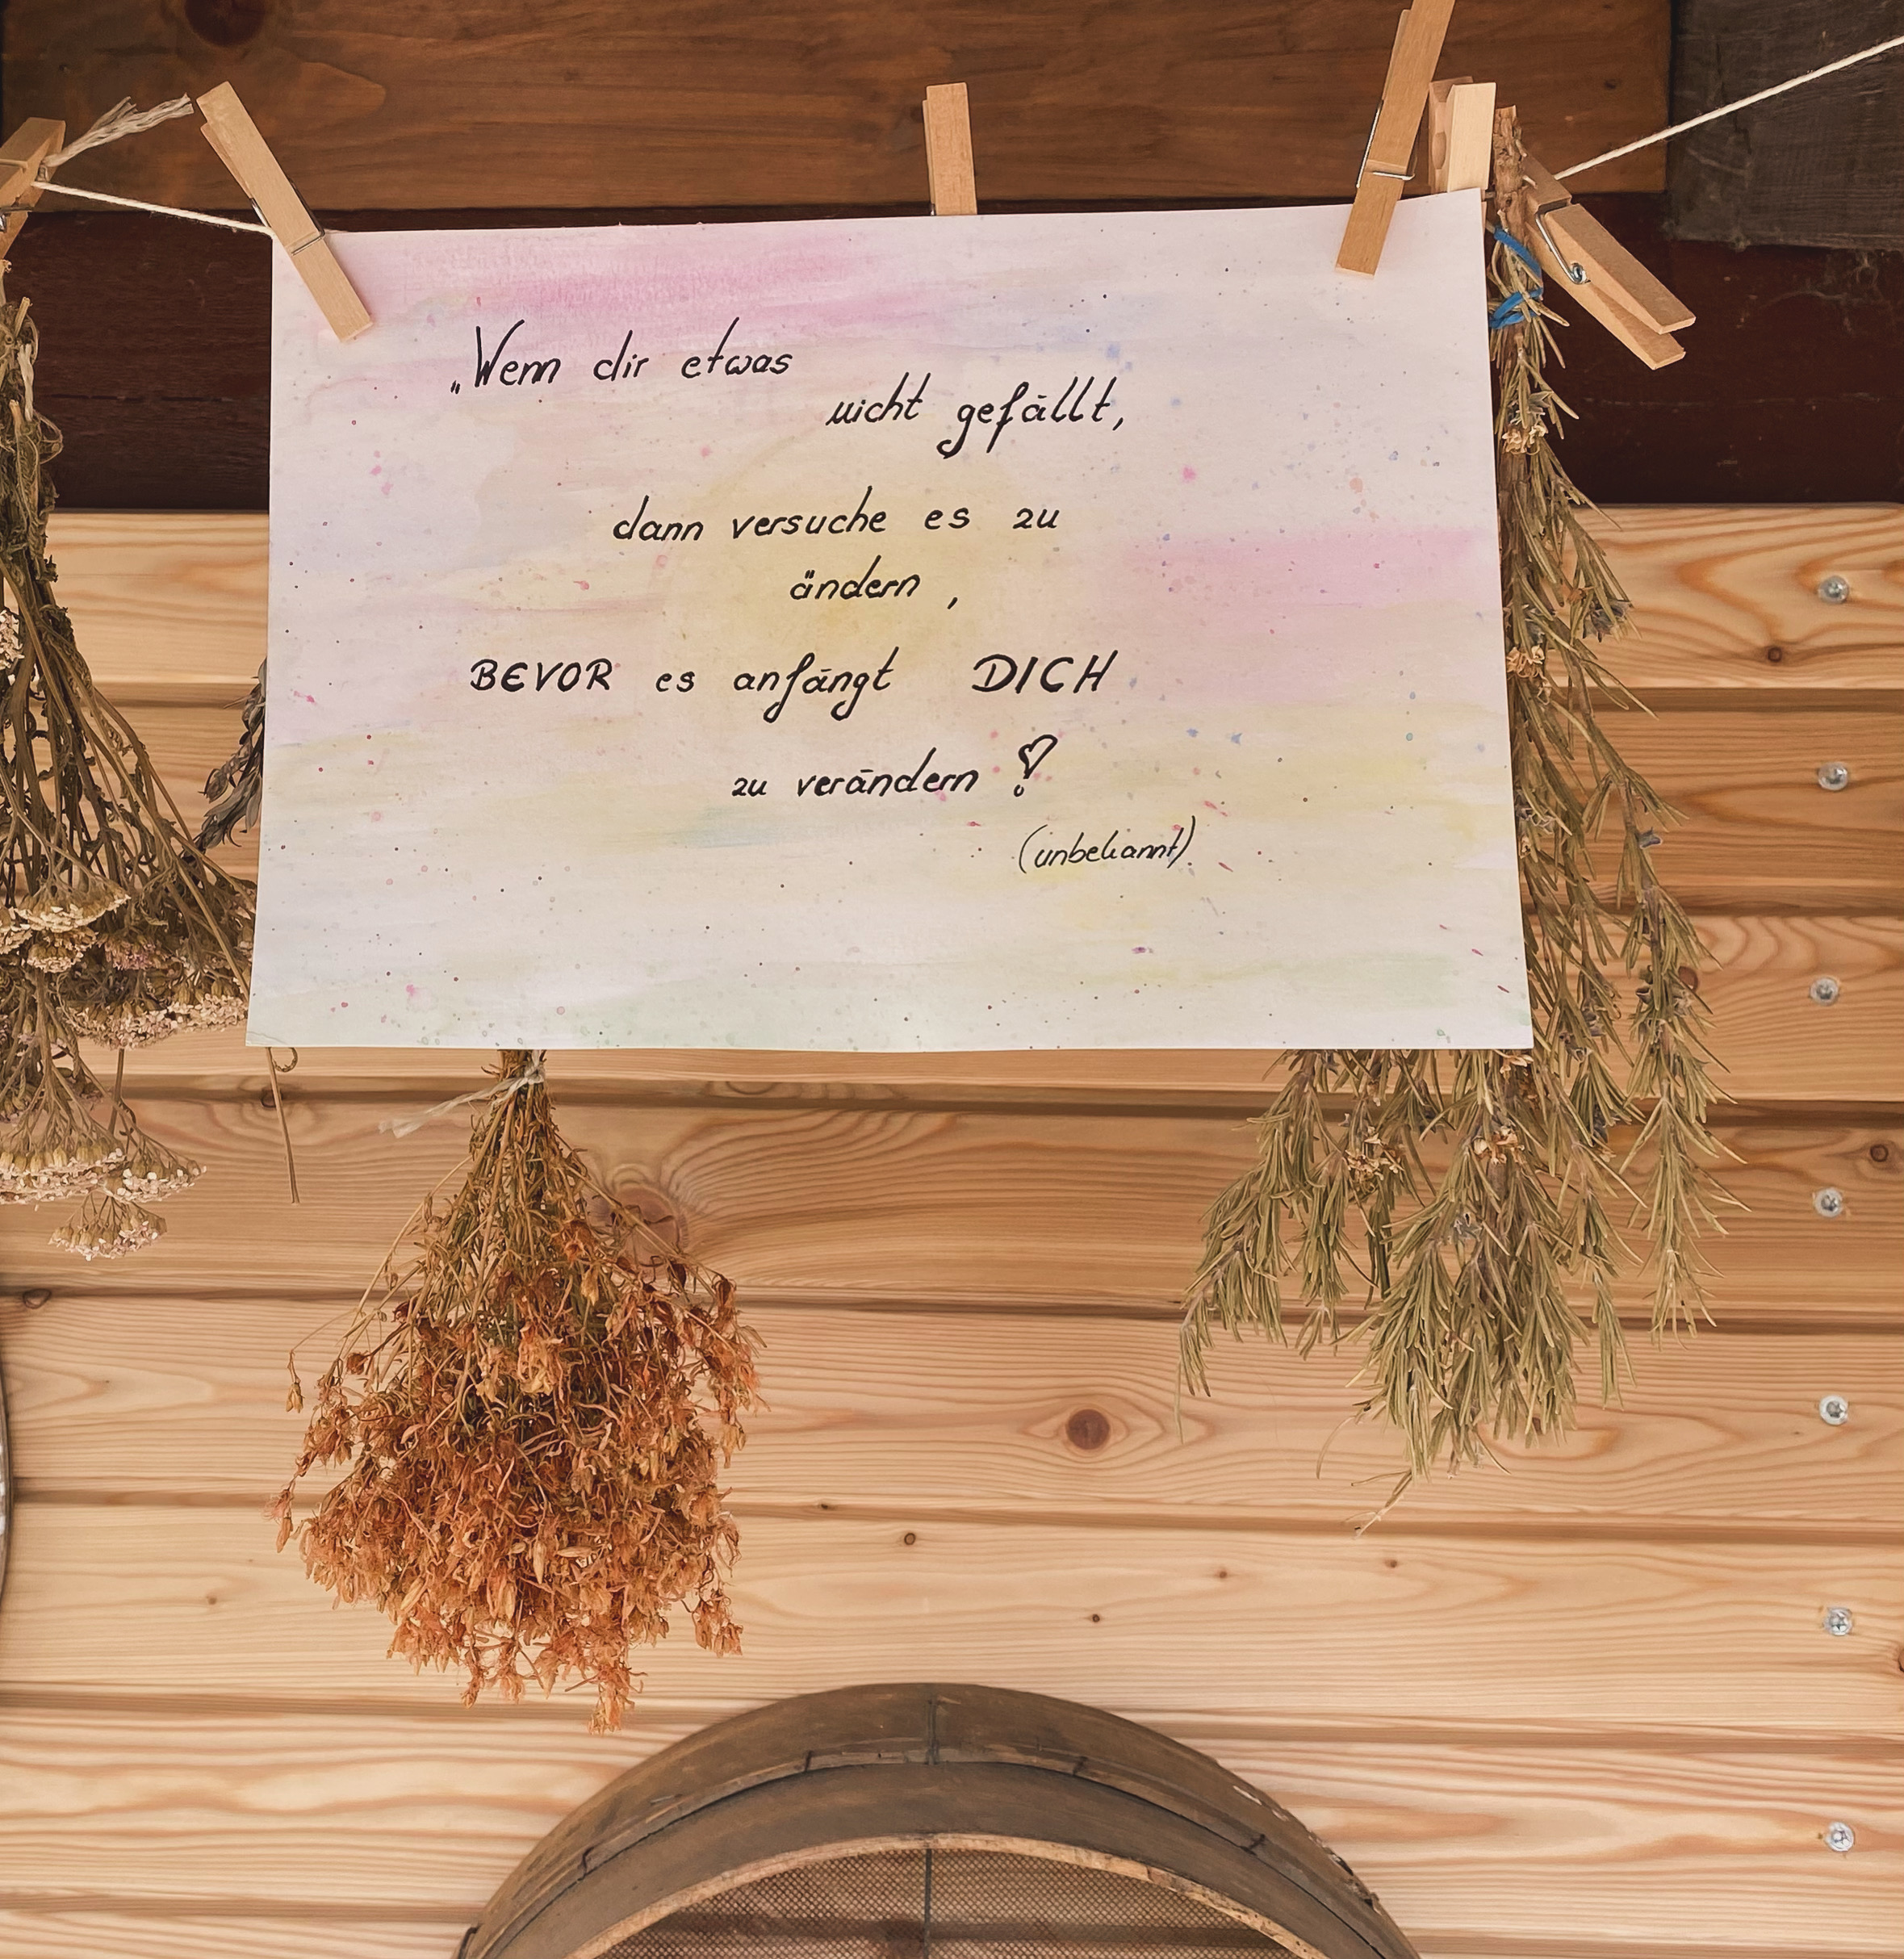 „Wenn dir etwas
nicht gefällt,
dann versuche es zu
ändern,
BEVOR es anfängt DICH
zu verändern!
(unbekannt)